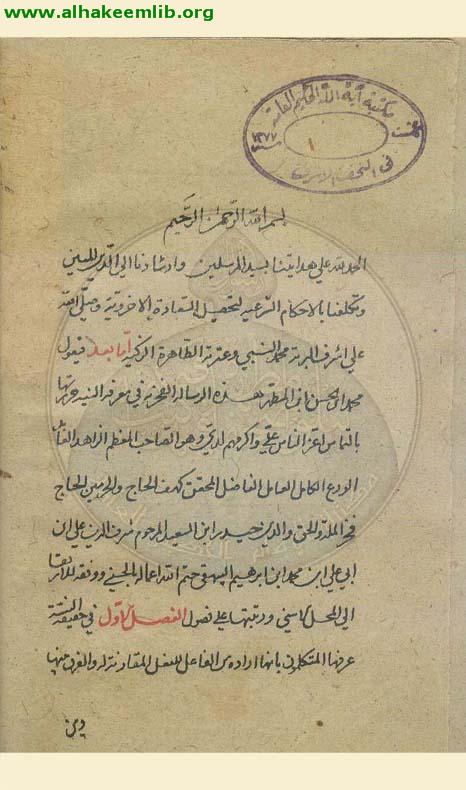 www.alhakeemlib.org
مكتبة آية الله الحكيم العامة
في النجف الاشرف
١٣٧٧
بسم الله الرحمن الرحيم
الحمد لله على هدايتنا بسيد المرسلين وارشادنا الى الدين المبين
وتكلفنا بالاحكام الشرعية لتحصيل السعادة الاخروية وصلى الله
على اشرف البرية محمد النبي وعترته الطاهرة الزكية اما بعد فيقول
محمد ابن الحسن ابن المطهر هذه الرسالة الفخرية في معرفة النية حررتها
بالتماس اعز الناس علي واكرمهم لدي وهو الصاحب المعظم الزاهد العابد
الورع الكامل العامل الفاضل المحقق كهف الحاج والحرمين الحاج
فخر الملة والحق والدين حيدر ابن السعيد المرحوم شرف الدين علي ابن
ابي علي ابن محمد ابن ابرهيم البيهقي ختم الله اعماله بالحسنى ووفقه للارتقاء
الى المحل الاسنى ورتبتها على فصول الفصل الاول في حقيقة النية
عرفها المتكلمون بانها ارادة من الفاعل للفعل المقارنة له والفرق بينها
وبين